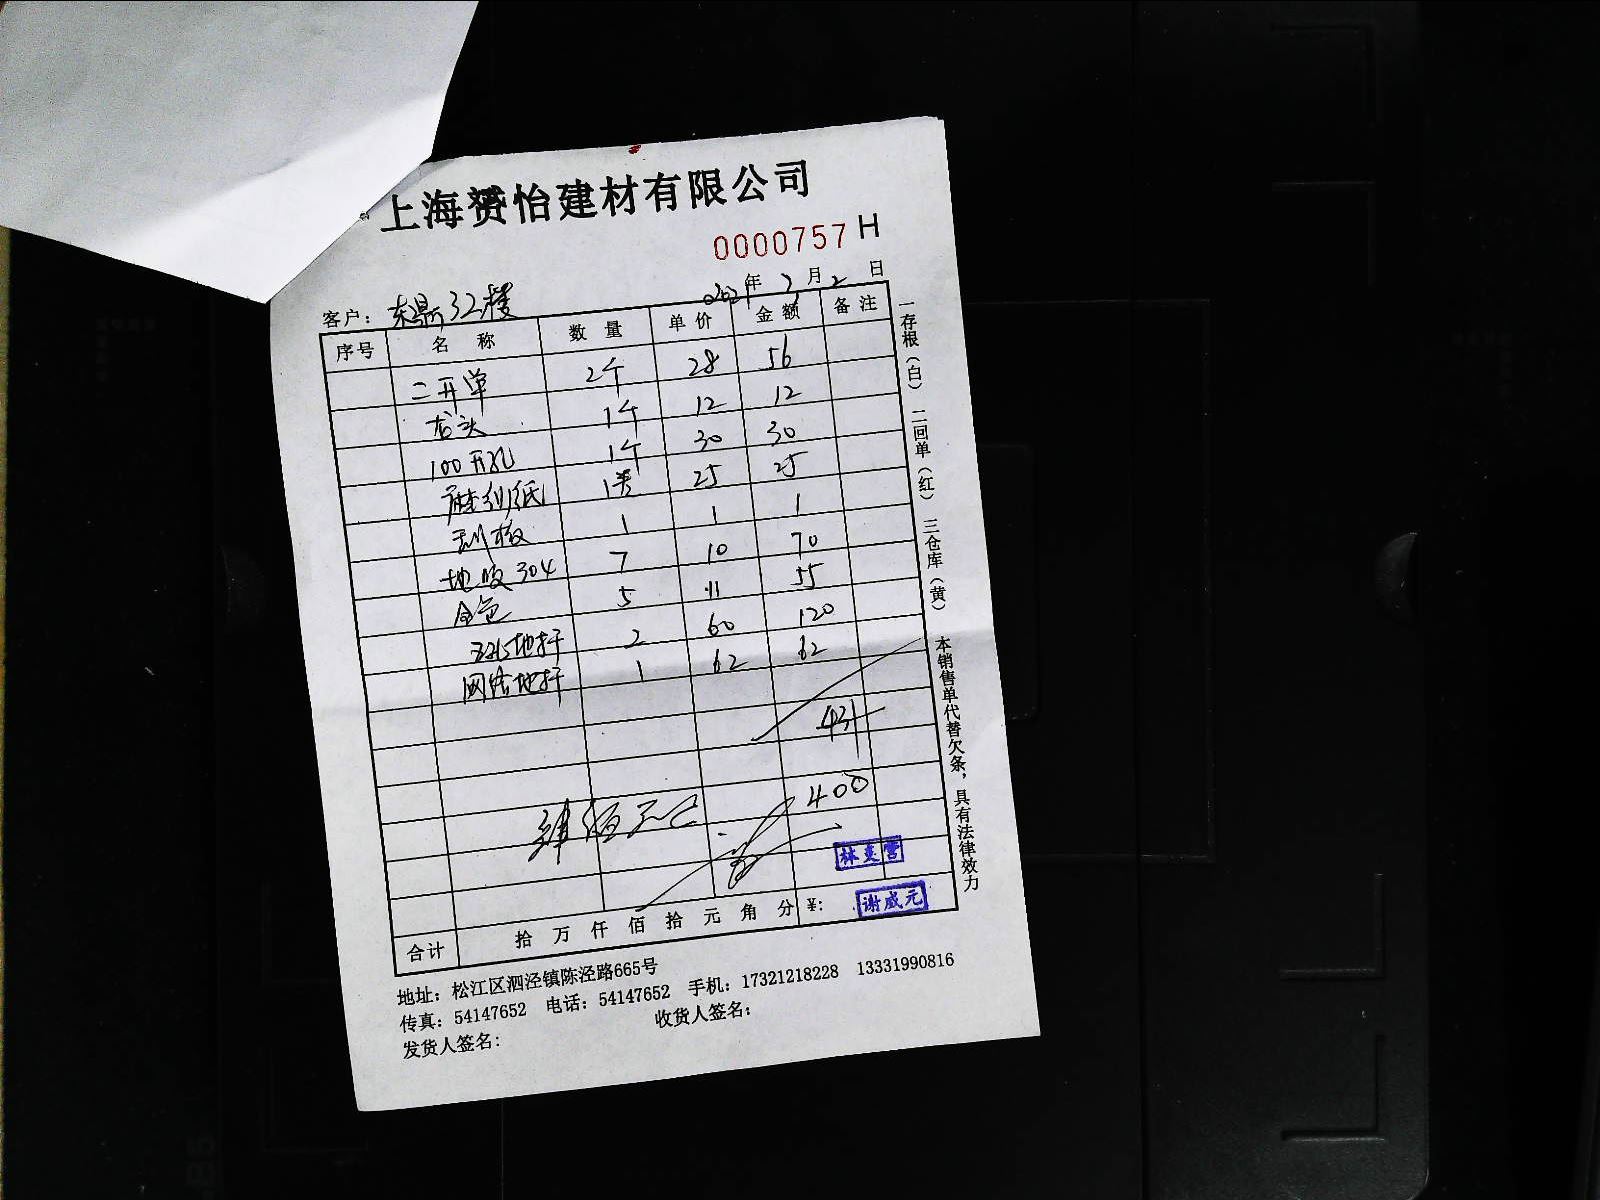 上海赟怡建材有限公司
0000757 H
年 2月2日
客户：东鼎32楼
序号 名称 数量 单价 金额 备注
二开单 2个 28 56
龙头 1个 12 12
100开孔 1个 30 30
1 25 25
刮板 1 1 1
地 304 7 10 70
金色 5 11 55
五孔地插 2 60 120
网络地插 1 62 62
431
400
肆佰元
林 营
合计 拾 万 仟 佰 拾 元 角 分 ¥:
谢威元
地址：松江区泗泾镇陈泾路665号
传真：54147652 电话：54147652 手机：17321218228 13331990816
发货人签名： 收货人签名：
一存根（白） 二回单（红） 三仓库（黄） 本销售单代替欠条，具有法律效力